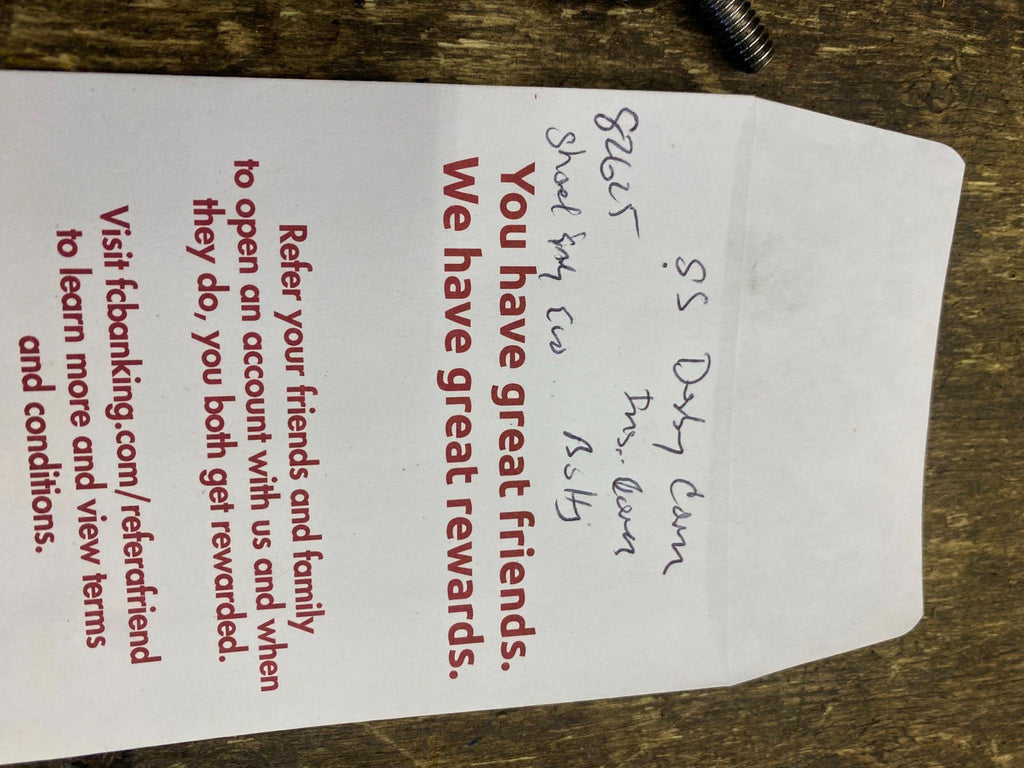 S.S Derby Cam
82625
You have great friends.
We have great rewards.
Refer your friends and family
to open an account with us and when
they do, you both get rewarded.
Visit fcbanking.com/referafriend
to learn more and view terms
and conditions.